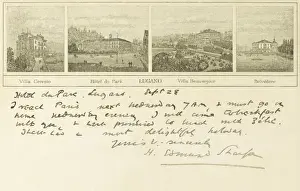 Villa Ceresio Hôtel du Parc LUGANO Villa Beauséjour Belvédère
Hotel du Parc, Lugano. Sept 28
I reach Paris next Wednesday 7 AM, & must go on
home Wednesday evening I will come to breakfast
with you & have promised to lunch with
There is a most delightful
Yours sincerely
H.